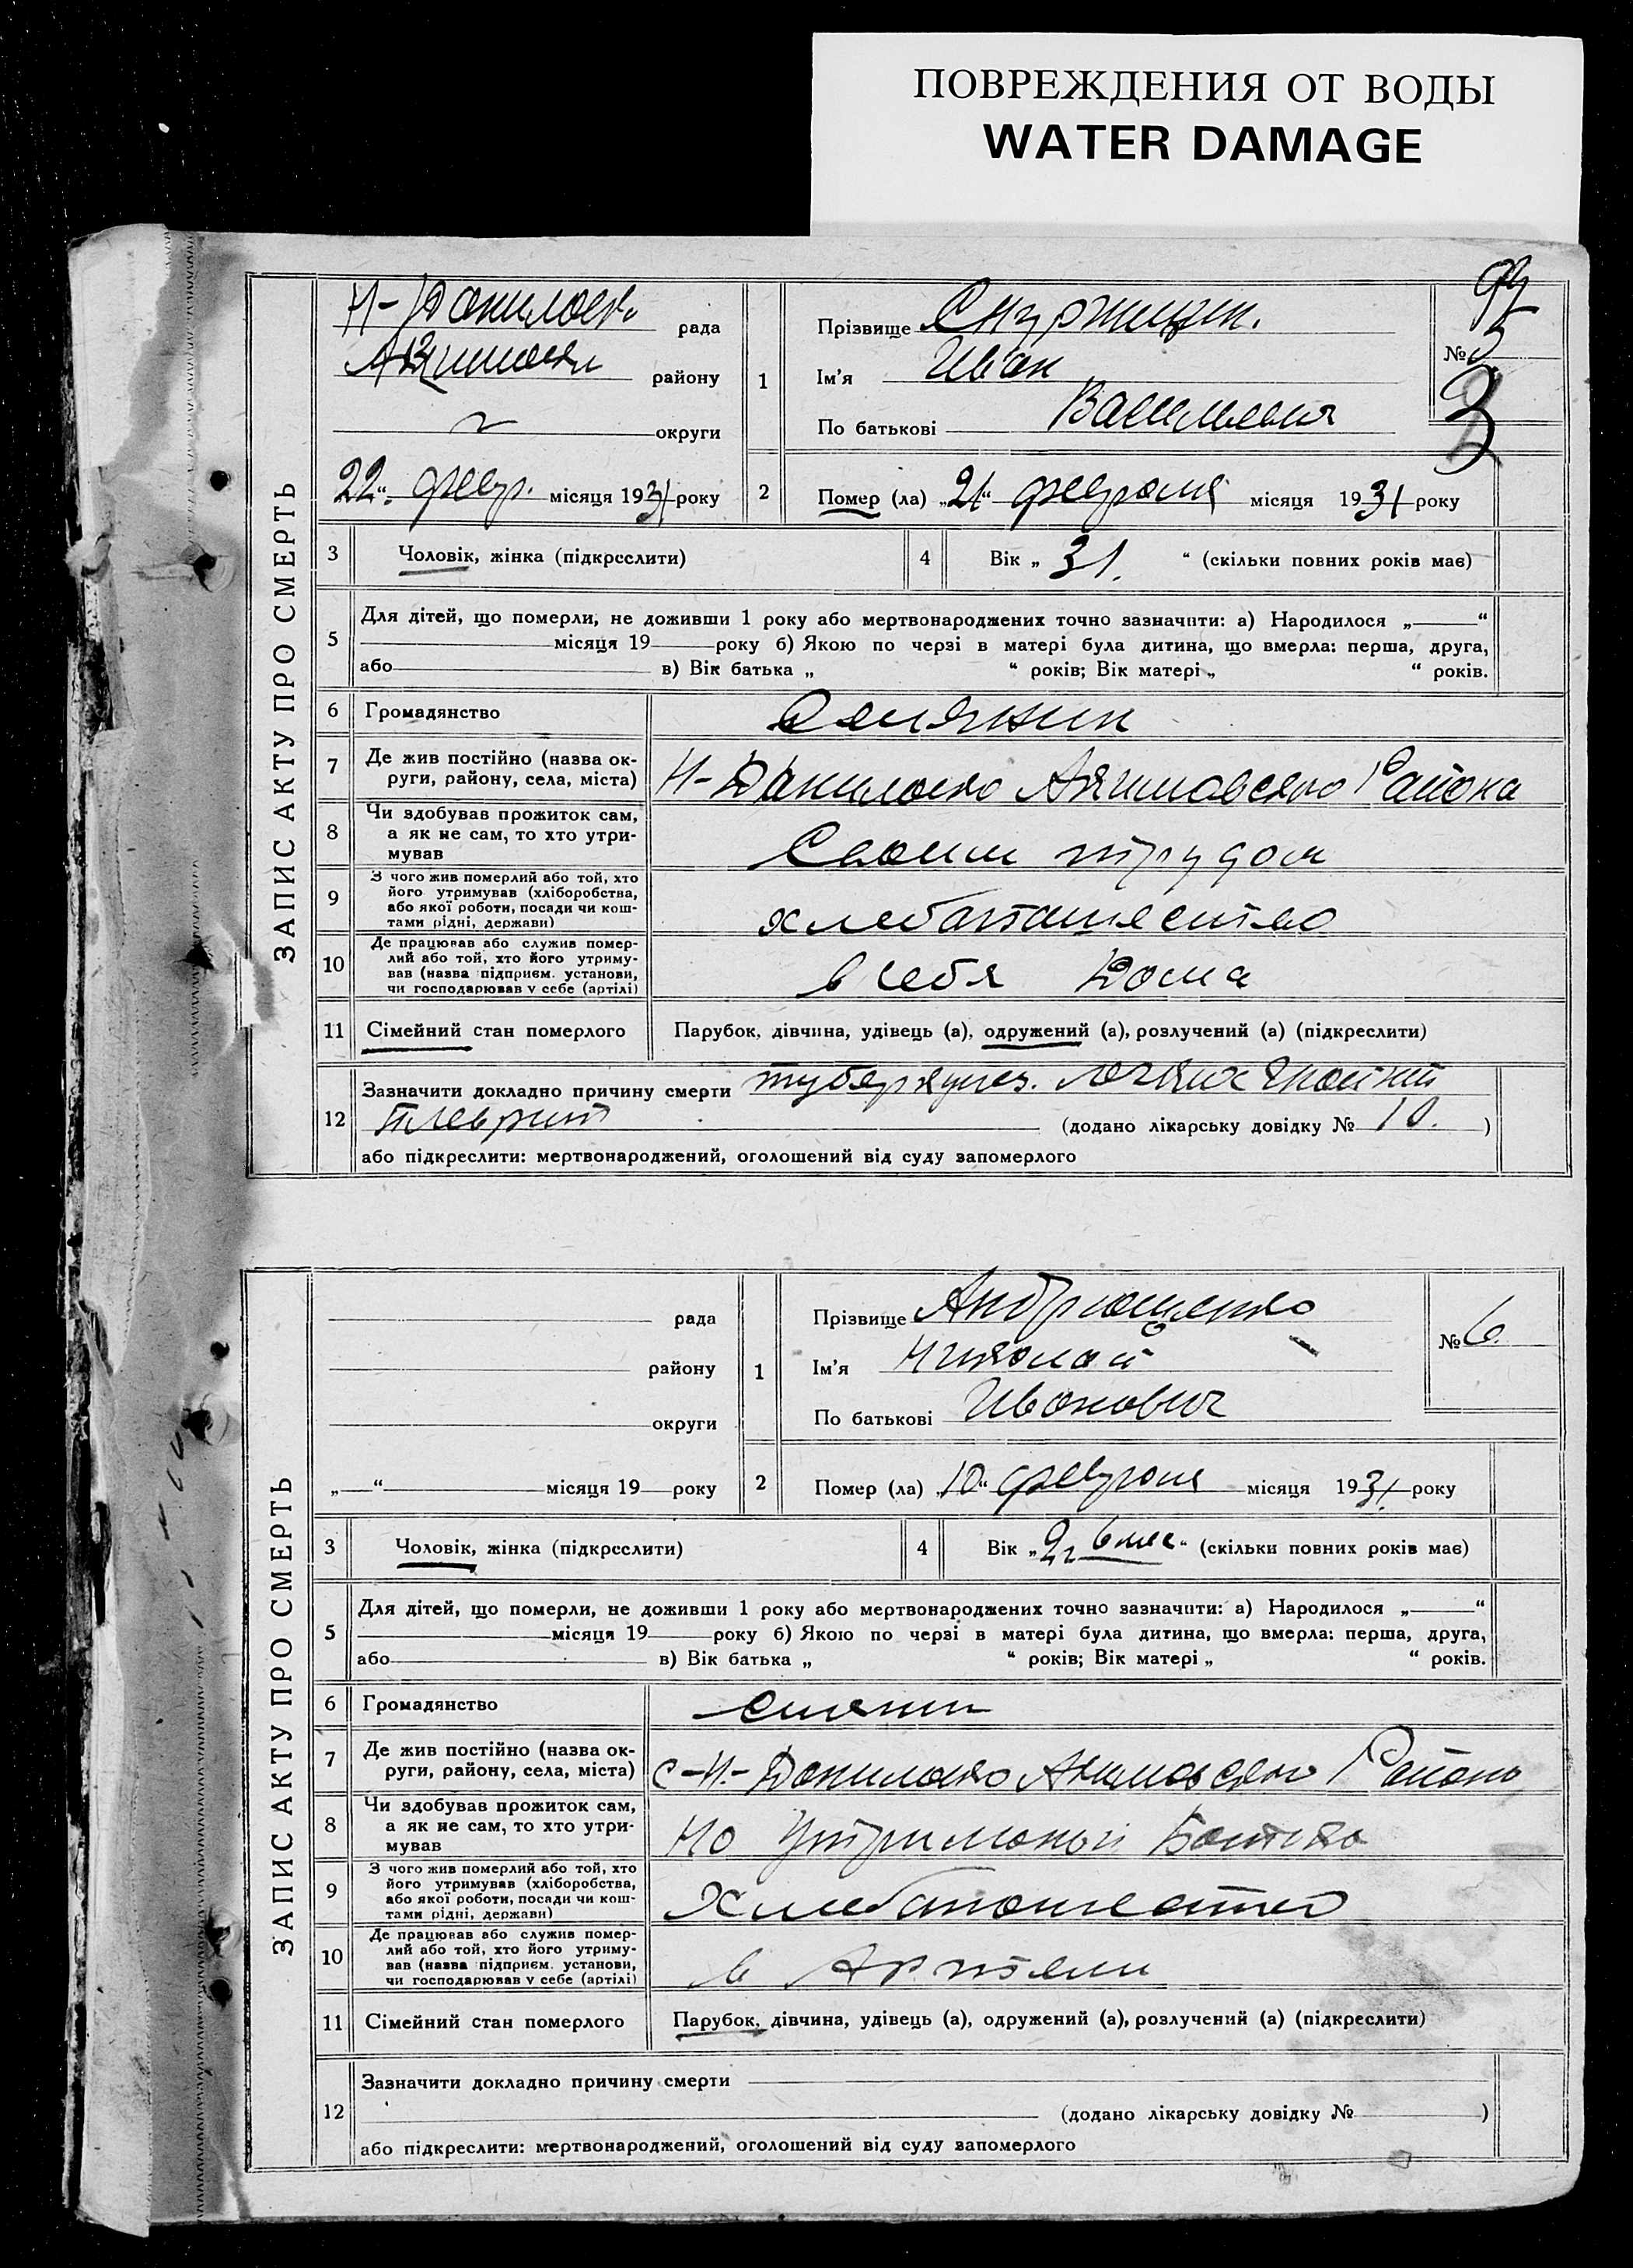 ПОВРЕЖДЕНИЯ ОТ ВОДЫ
WATER DAMAGE
ЗАПИС АКТУ ПРО СМЕРТЬ
Н-Даниловка рада
району
округи
22 " февр. місяця 1931 року
1
Прізвище
Ім'я Иван
По батькові
№ 5
3
2
Помер (ла) „ 21 " февраля місяця 1931 року
3 Чоловік, жінка (підкреслити)
4 Вік „ 31. " (скільки повних років має)
5 Для дітей, що померли, не доживши 1 року або мертвонароджених точно зазначити: а) Народилося „ "
місяця 19 року б) Якою по черзі в матері була дитина, що вмерла: перша, друга,
або в) Вік батька „ " років; Вік матері „ " років.
6 Громадянство Селянин
7 Де жив постійно (назва округи, району, села, міста) Н-Даниловка Акимовского Района
8 Чи здобував прожиток сам, а як не сам, то хто утримував Своим трудом
9 З чого жив померлий або той, хто його утримував (хліборобства, або якої роботи, посади чи коштами рідні, держави)
10 Де працював або служив померлий або той, хто його утримував (назва підприєм. установи, чи господарював у себе (артілі) в себя дома
11 Сімейний стан померлого Парубок, дівчина, удівець (а), одружений (а), розлучений (а) (підкреслити)
12 Зазначити докладно причину смерти туберкулез. легких гнойний
плеврит (додано лікарську довідку № 10. )
або підкреслити: мертвонароджений, оголошений від суду запомерлого
ЗАПИС АКТУ ПРО СМЕРТЬ
рада
району
округи
„ " місяця 19 року
1
Прізвище Андрющенко
Ім'я Николай
По батькові Иванович
№ 6.
2
Помер (ла) „ 10 " февраля місяця 1931. року
3 Чоловік, жінка (підкреслити)
4 Вік „ 2г 6 мес " (скільки повних років має)
5 Для дітей, що померли, не доживши 1 року або мертвонароджених точно зазначити: а) Народилося „ "
місяця 19 року б) Якою по черзі в матері була дитина, що вмерла: перша, друга,
або в) Вік батька „ " років; Вік матері „ " років.
6 Громадянство
7 Де жив постійно (назва округи, району, села, міста) с-Н.-Даниловка Акимовского Района
8 Чи здобував прожиток сам, а як не сам, то хто утримував На утриманьи Батька
9 З чого жив померлий або той, хто його утримував (хліборобства, або якої роботи, посади чи коштами рідні, держави)
10 Де працював або служив померлий або той, хто його утримував (назва підприєм. установи, чи господарював у себе (артілі) в Артели
11 Сімейний стан померлого Парубок, дівчина, удівець (а), одружений (а), розлучений (а) (підкреслити)
12 Зазначити докладно причину смерти
(додано лікарську довідку № )
або підкреслити: мертвонароджений, оголошений від суду запомерлого